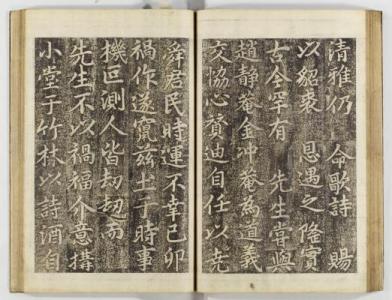 清雅仍 命歌詩 賜
以貂裘 恩遇之隆實
古今罕有 先生嘗與
趙靜菴金冲菴為道義
交協心贊迪自任以堯
舜君民時運不幸己卯
禍作遂竄玆土于時事
機叵測人皆劫劫而
先生不以禍福介意搆
小堂于竹林以詩酒自